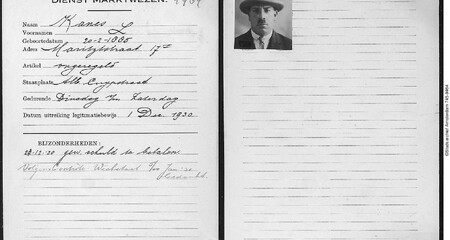 DIENST MARKTWEZEN. 1909
Naam Kanes
Voornamen L
Geboortedatum 20-2-1885
Adres Maritzstraat 17
Artikel ongeregeld
Staanplaats Alb. Cuypstraat
Gedurende Dinsdag t/m Zaterdag
Datum uitreiking legitimatiebewijs 1 Dec. 1930
BIJZONDERHEDEN:
12-30 gew. schuld te betalen
©Stadsarchief Amsterdam